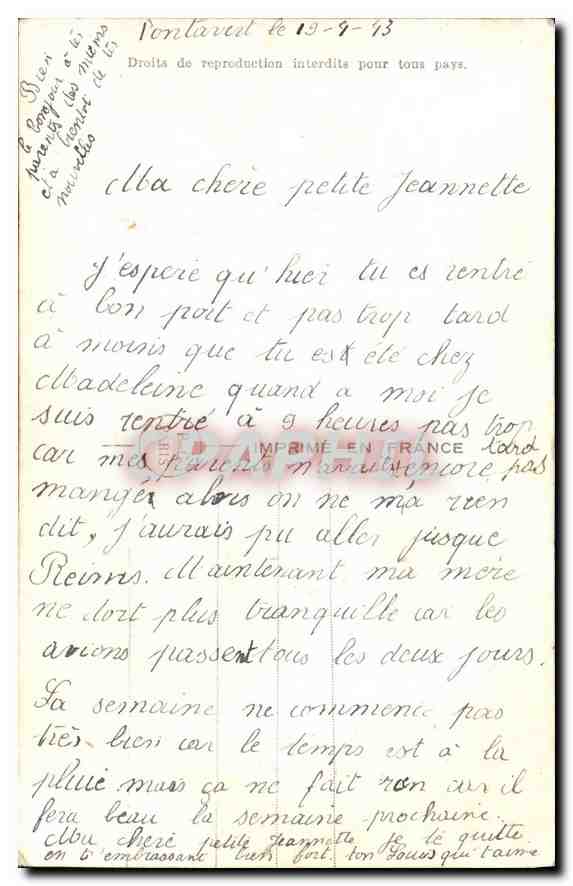 Pontavert le 19-4-43
Droits de reproduction interdits pour tous pays.
Bien
le bonjour à tes
parents des miens
et a bientôt de tes
nouvelles
Ma chere petite Jeannette
J'espere qu'hier tu es rentré
à bon port et pas trop tard
à moins que tu est été chez
Madeleine quand a moi je
suis rentré à 9 heures pas trop
tard
IMPRIMÉ EN FRANCE
car mes parents n'avait encore pas
mangér alors on ne m'a rien
dit, j'aurais pu aller jusque
Reims. Maintenant ma mère
ne dort plus tranquille car les
avions passent tous les deux jours.
La semaine ne commence pas
très bien car le temps est à la
pluie mais ça ne fait rien car il
fera beau la semaine prochaine.
Ma chere petite Jeannette je te quitte
en t'embrassant bien fort. ton Louis qui t'aime